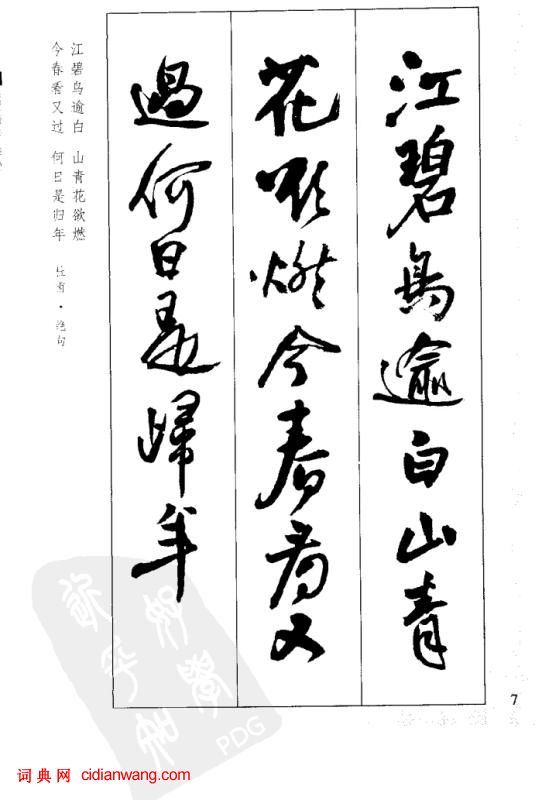 江碧鳥逾白山青
花欲燃今春看又
過何日是歸年
江碧鸟逾白 山青花欲燃
今春看又过 何日是归年
杜甫·绝句
7
PDG
词典网 cidianwang.com